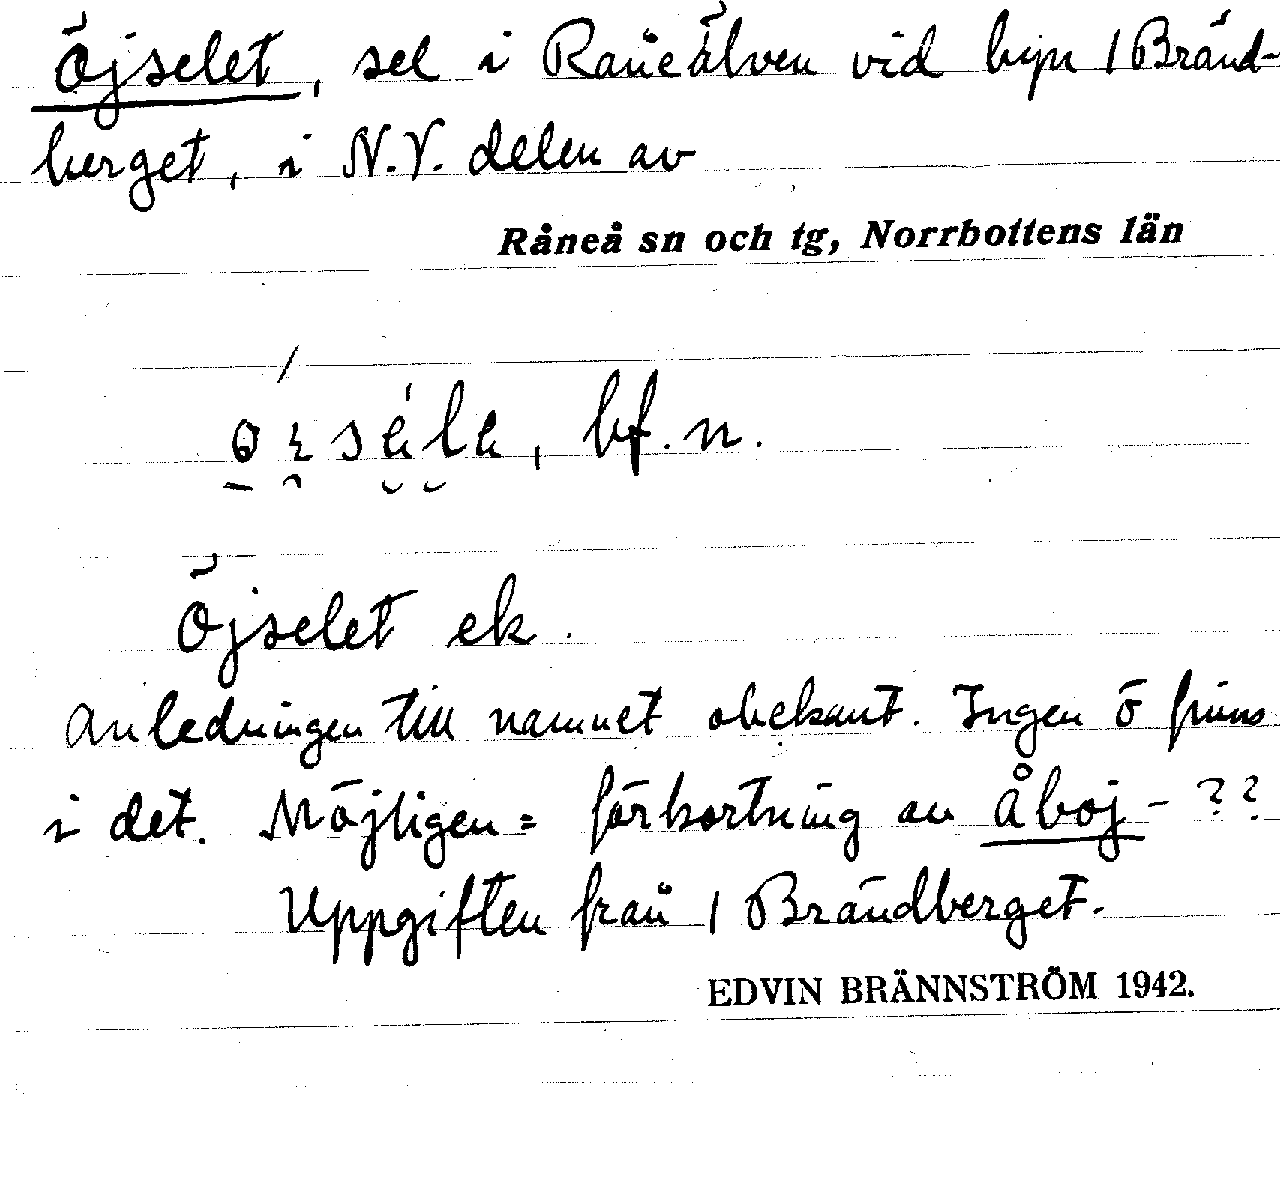 Öjselet, sel i Råneälven vid byn 1 Bränd-
berget, i N.V. delen av
Råneå sn och tg, Norrbottens län
bf. n.
Öjselet ek.
Anledningen till namnet obekant. Ingen ö finns
i det. Möjligen = förkortning av åböj- ??
Uppgiften från 1 Brändberget.
EDVIN BRÄNNSTRÖM 1942.